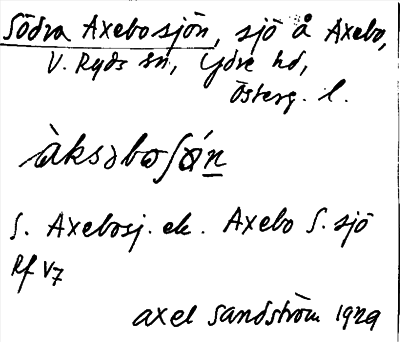 Södra Axebosjön, sjö å Axebo,
V. Ryds sn, Ydre hd,
Österg. l.
àksəboʃö́n
S. Axebosj. ek. Axebo S. sjö
Rf V7
Axel Sandström 1929